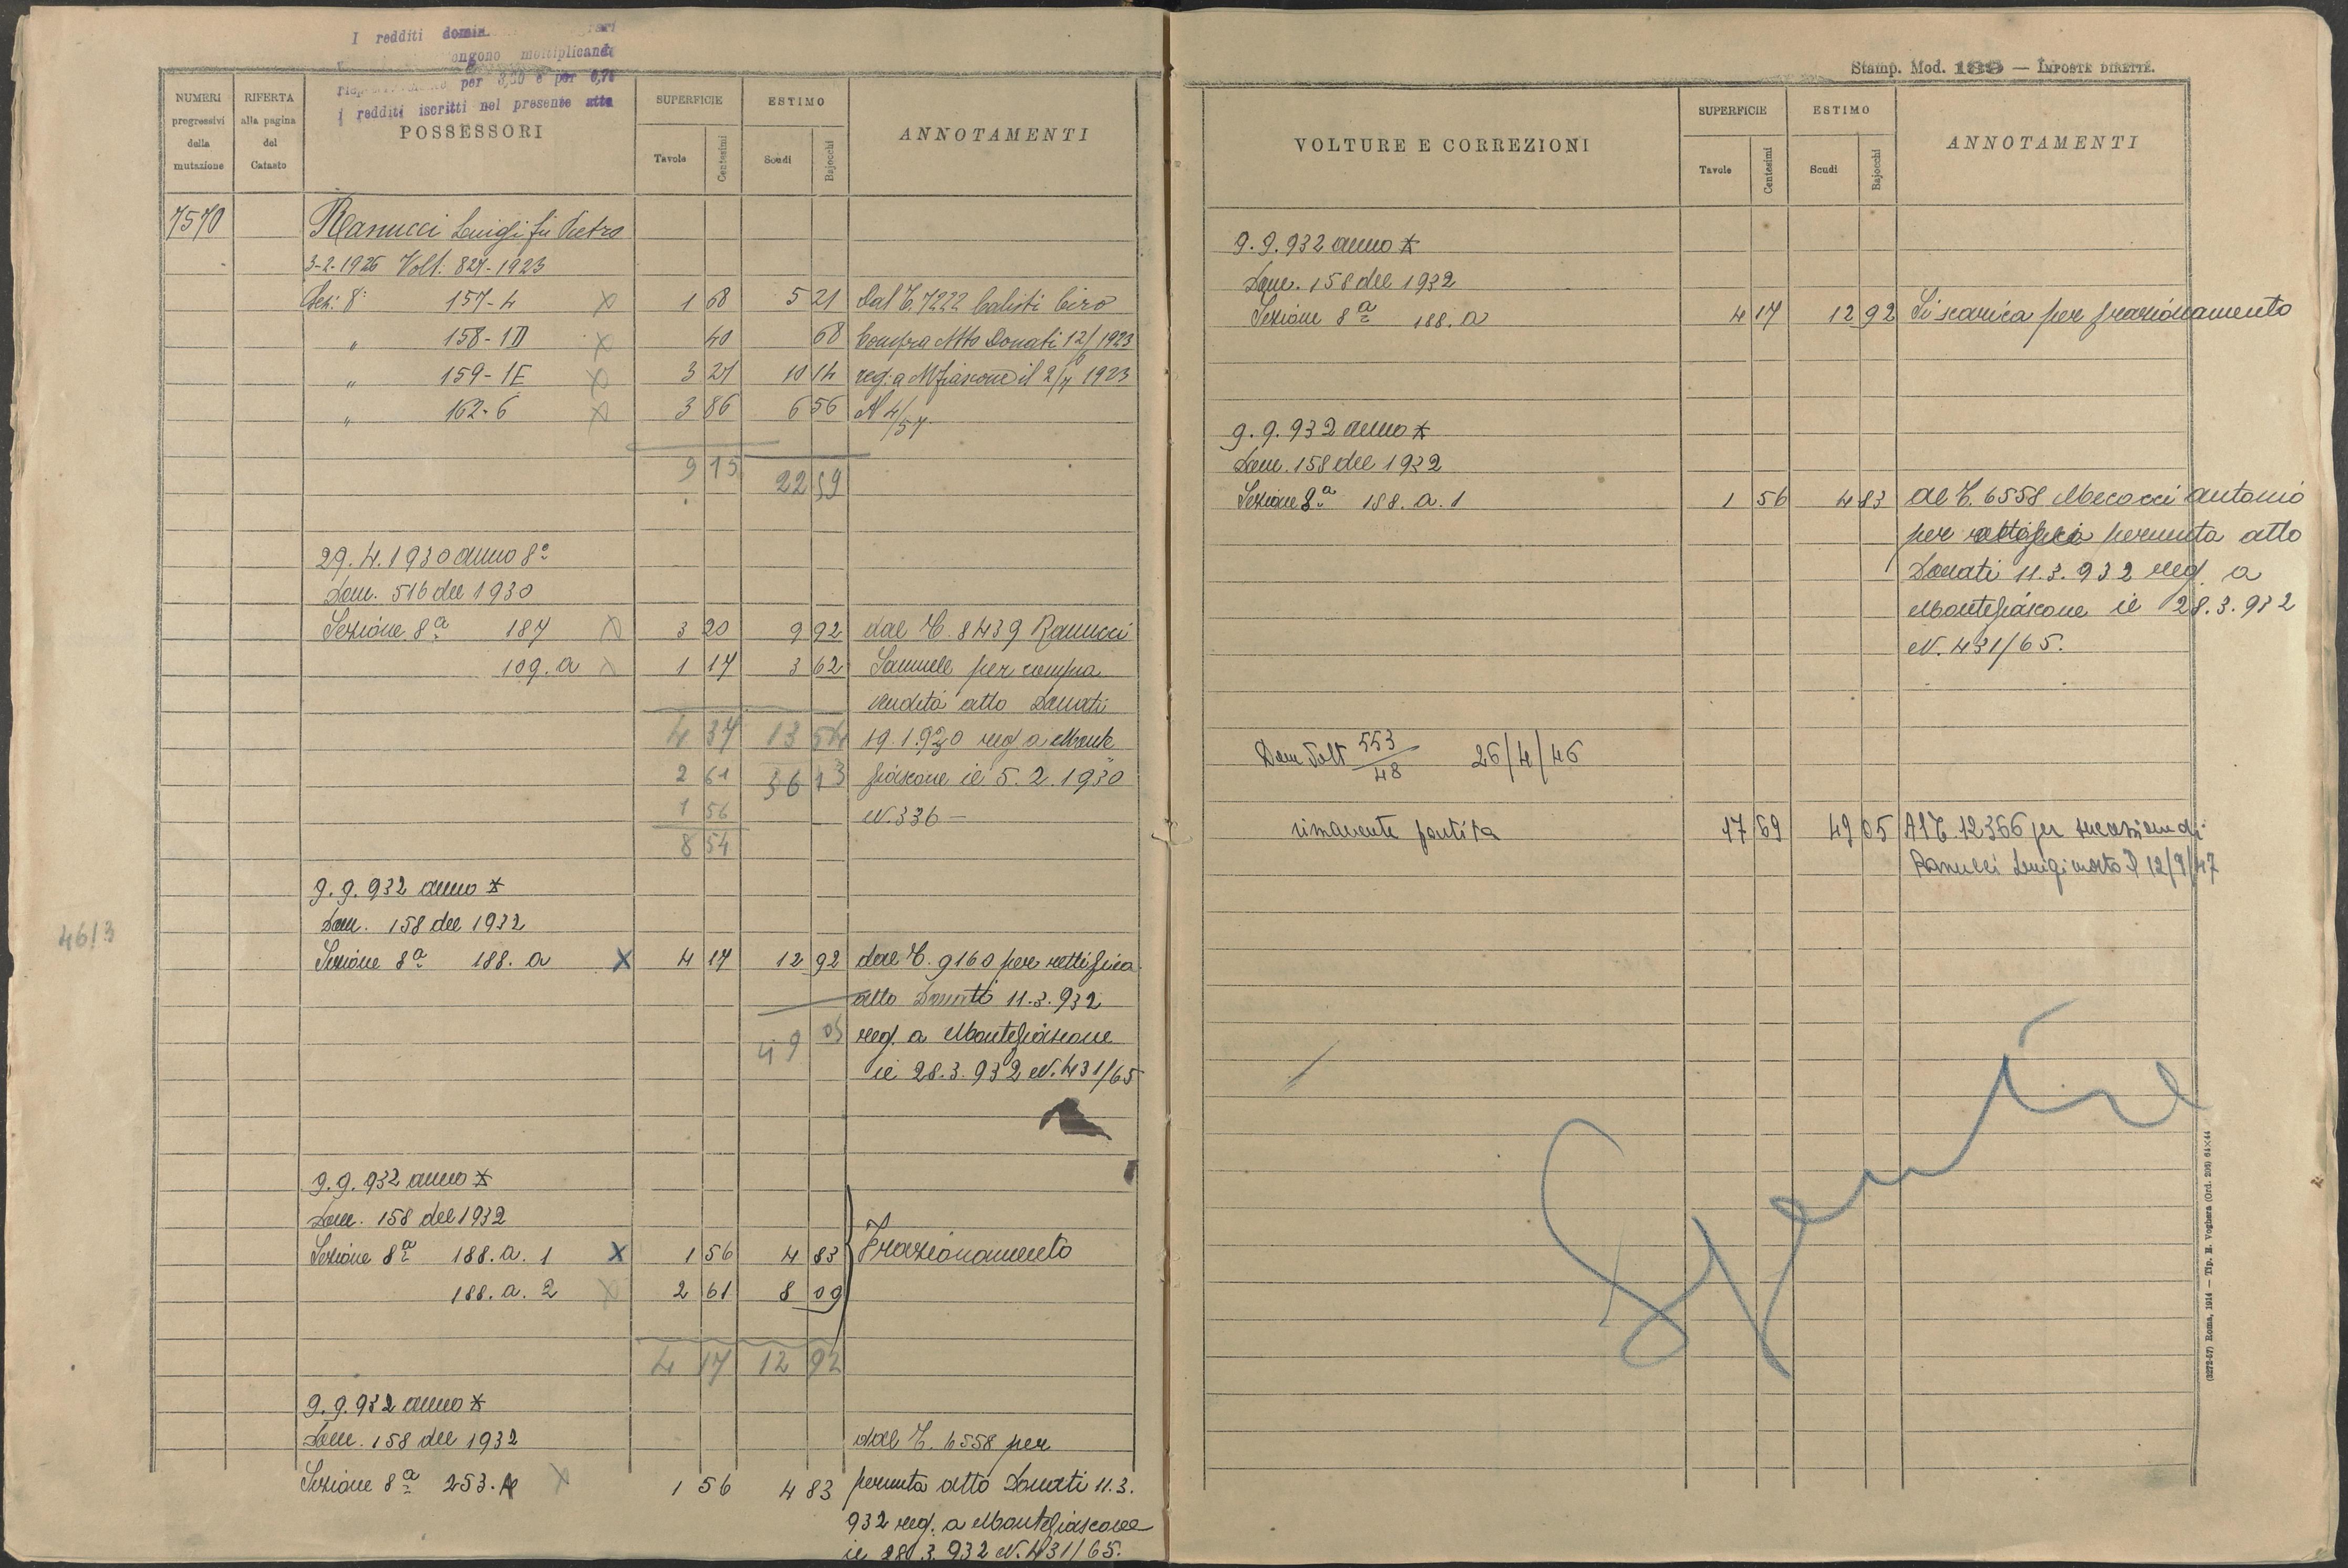 I redditi domin
ongono moltiplicando
per 3,20 e per 0,75
i redditi iscritti nel presente atto
NUMERI progressivi della mutazione
RIFERTA alla pagina del Catasto
POSSESSORI
SUPERFICIE
Tavole
Centesimi
ESTIMO
Scudi
Bajocchi
ANNOTAMENTI
7570 Ranucci Luigi fu Pietro
3-2-1926 Volt. 827-1923
Sez. 8ª 157-4 1 68 5 21 Dal T. 7222 Calisti Ciro
" 158-1D 40 68 Compra Atto Donati 12/6 1923
" 159-1E 3 21 10 14 reg. a Mfiascone il 2/7 1923
" 162-6 3 86 6 56 N 4/57
9 15 22 59
29.4.1930 anno 8º
Dom. 516 del 1930
Sezione 8ª 187 3 20 9 92 dal T. 8439 Ranucci
109.a 1 17 3 62 Samuele per compra
vendita atto Donati
4 37 13 54 19.1.930 reg a Monte
2 61 36 13 fiascone il 5.2.1930
1 56 N. 336 —
8 54
9.9.932 anno X
Dom. 158 del 1932
4613
Sezione 8ª 188.a X 4 17 12 92 dal T. 9160 per rettifica
atto Donati 11.3.932
49 05 reg. a Montefiascone
il 28.3.932 N. 431/65
9.9.932 anno X
Dom. 158 del 1932
Sezione 8ª 188.a.1 X 1 56 4 83 Frazionamento
188.a.2 2 61 8 09
4 17 12 92
9.9.932 anno X
Dom. 158 del 1932 dal T. 6558 per
Sezione 8ª 253. 1 56 4 83 permuta atto Donati 11.3.
932 reg. a Montefiascone
il 28.3.932 N. 431/65.
Stamp. Mod. 188 — IMPOSTE DIRETTE.
VOLTURE E CORREZIONI
SUPERFICIE
Tavole
Centesimi
ESTIMO
Scudi
Bajocchi
ANNOTAMENTI
9.9.932 anno X
Dom. 158 del 1932
Sezione 8ª 188.a 4 17 12 92 Si scarica per frazionamento
9.9.932 anno X
Dom. 158 del 1932
Sezione 8ª 188.a.1 1 56 4 83 al T. 6558 Mecocci Antonio
per rettifica permuta atto
Donati 11.3.932 reg. a
Montefiascone il 28.3.932
N. 431/65.
Dom Volt 553/48 26/4/46
rimanente partita 17 69 49 05 Al T. 12366 per successione di
Ranucci Luigi morto il 12/9/47
Spenta
(3272-57) Roma, 1914 — Tip. E. Voghera (Ord. 203) 64×44